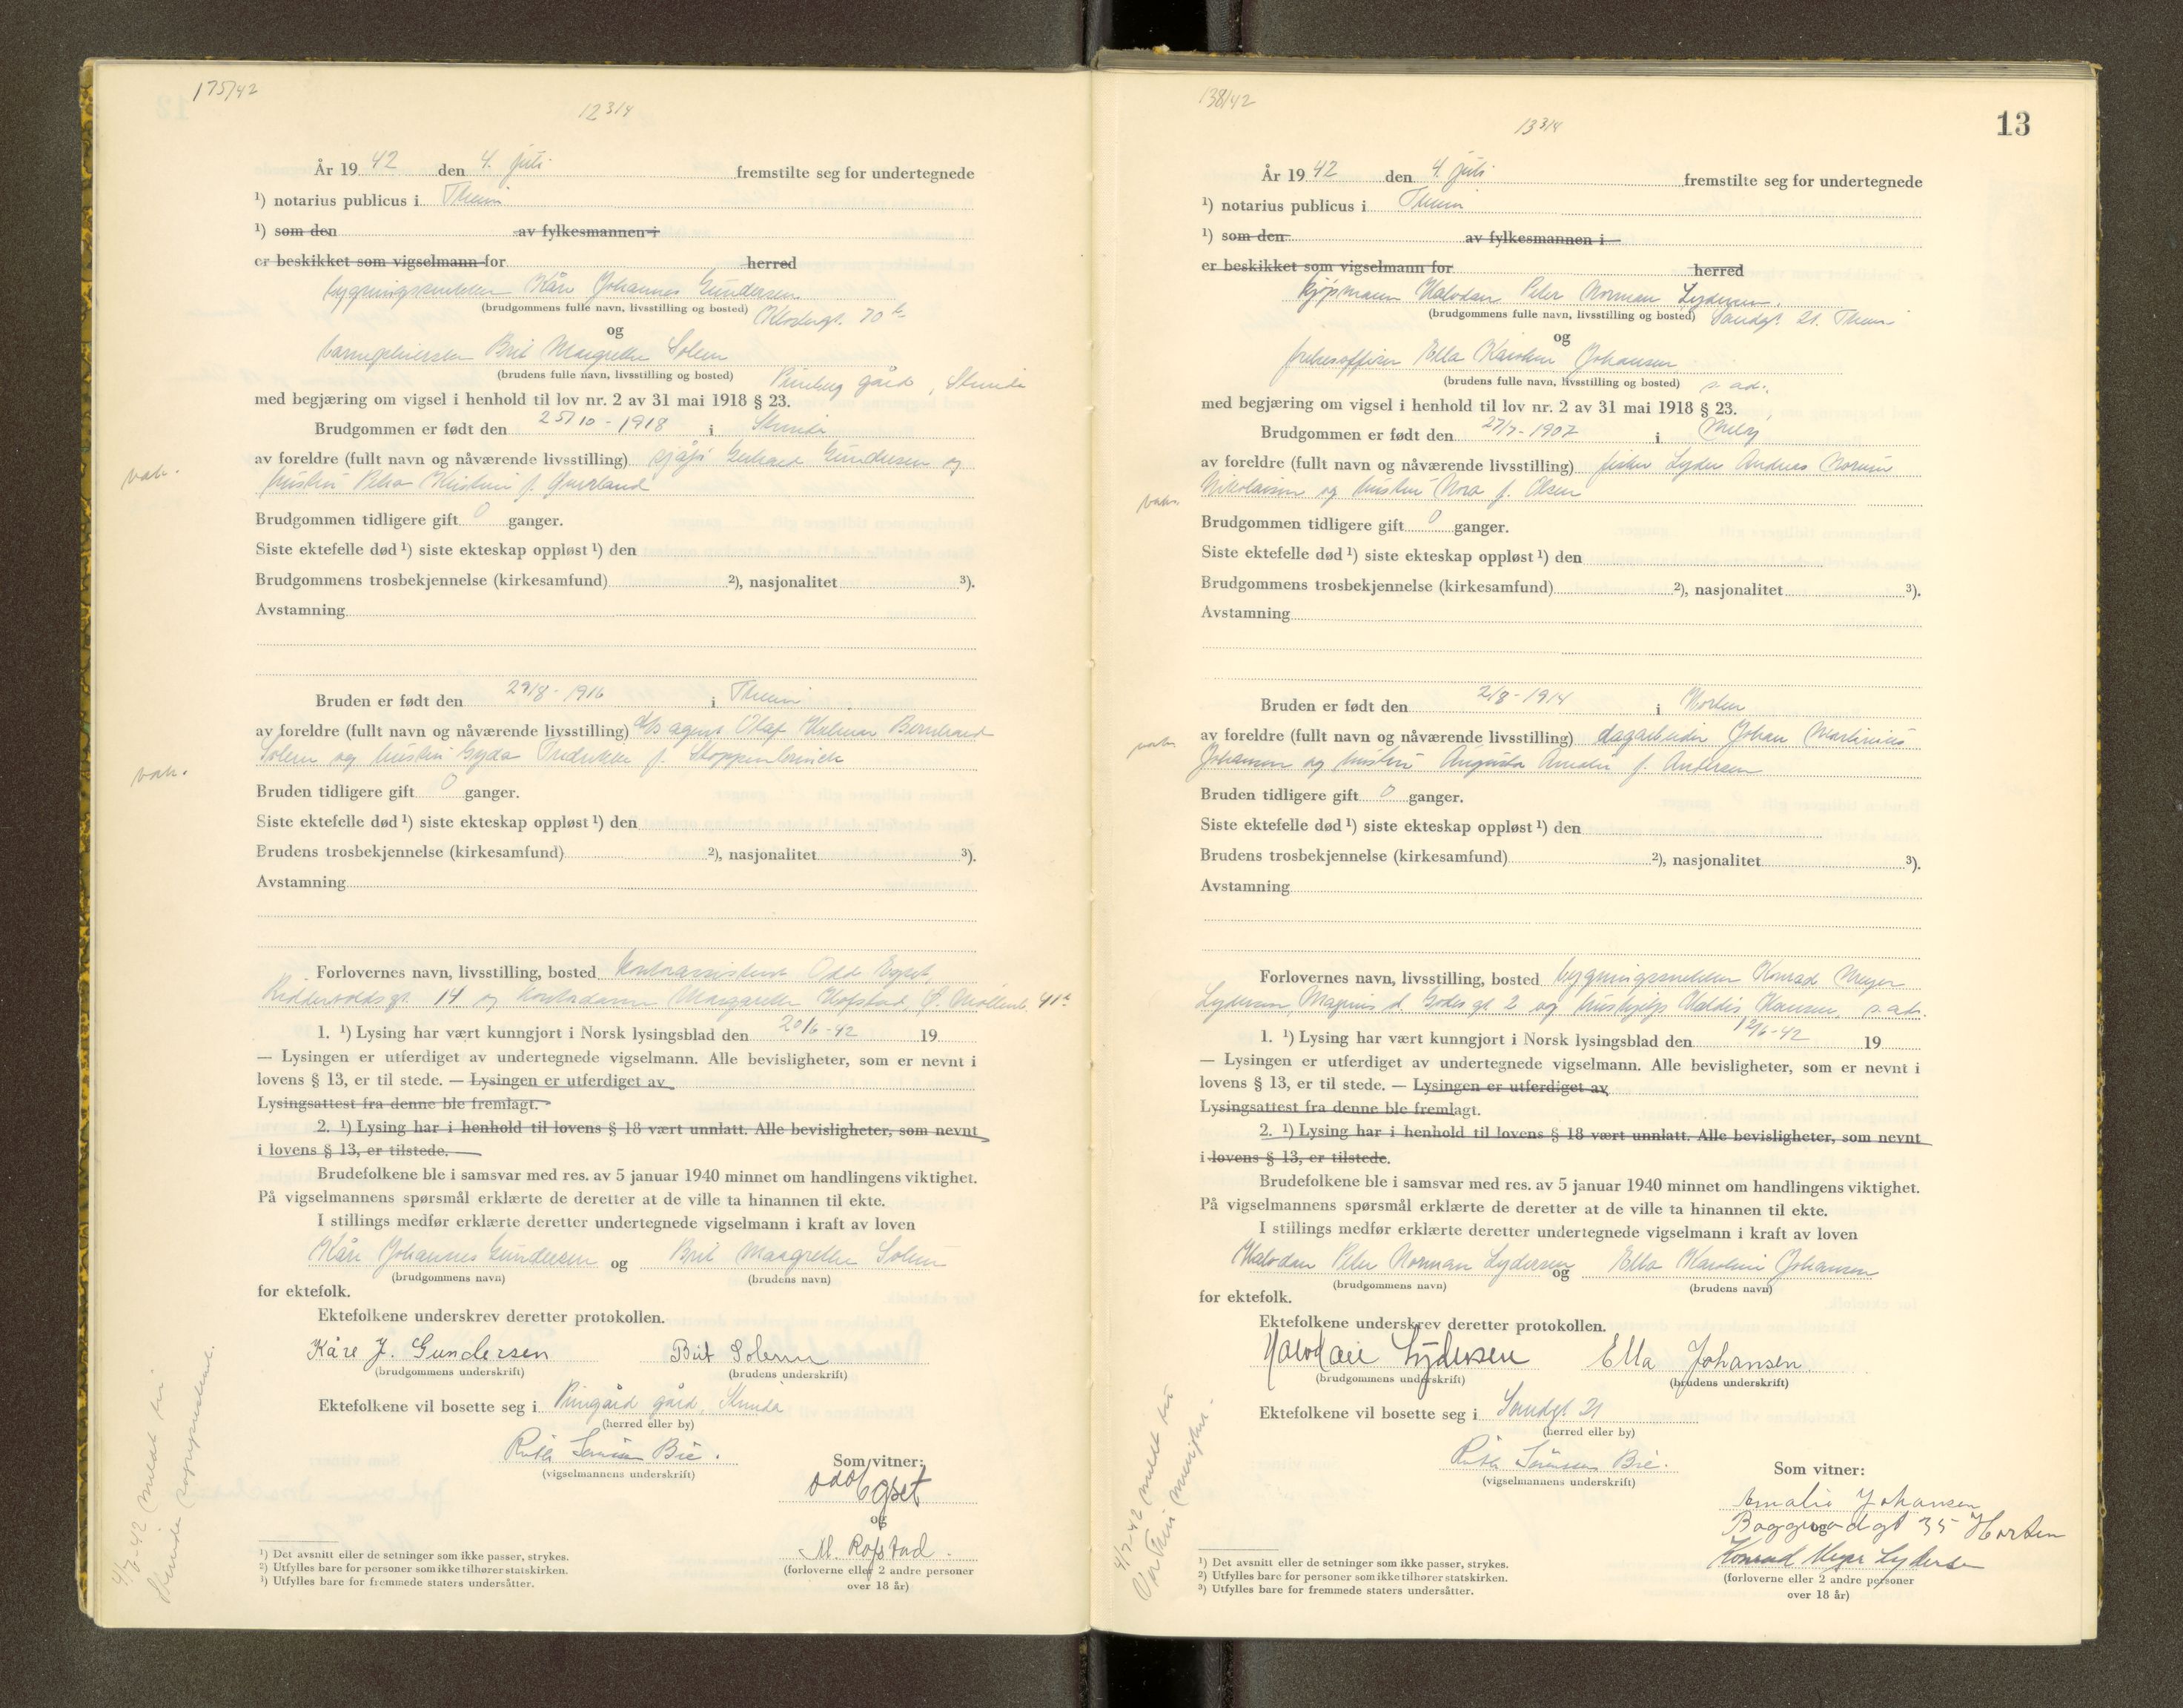 175/42
År 19 42 den 4. juli fremstilte seg for undertegnede
¹) notarius publicus i Th.heim
¹) som den av fylkesmannen i
er beskikket som vigselmann for herred
bygningssnekker Kåre Johannes Gundersen
(brudgommens fulle navn, livsstilling og bosted)
og
barnepleierske Brit Margrethe Solem
(brudens fulle navn, livsstilling og bosted) gård, Strinda
med begjæring om vigsel i henhold til lov nr. 2 av 31 mai 1918 § 23.
Brudgommen er født den 25/10 - 1918 i Strinda
av foreldre (fullt navn og nåværende livsstilling) sjåfør Gerhard Gundersen og
hustru Petra Kristine f.
Brudgommen tidligere gift 0 ganger.
Siste ektefelle død ¹) siste ekteskap oppløst ¹) den
Brudgommens trosbekjennelse (kirkesamfund) ²), nasjonalitet ³).
Avstamning
Bruden er født den 29/8 - 1916 i Th.heim
av foreldre (fullt navn og nåværende livsstilling) agent Olaf Bernhard
Solem og hustru Gyda Fredrikke f.
Bruden tidligere gift 0 ganger.
Siste ektefelle død ¹) siste ekteskap oppløst ¹) den
Brudens trosbekjennelse (kirkesamfund) ²), nasjonalitet ³).
Avstamning
Forlovernes navn, livsstilling, bosted Kontorassistent Odd Egset
Riddervoldsgt. 14 og kontordame Margarethe
1. ¹) Lysing har vært kunngjort i Norsk lysingsblad den 20/6-42 19
— Lysingen er utferdiget av undertegnede vigselmann. Alle bevisligheter, som er nevnt i
lovens § 13, er til stede. — Lysingen er utferdiget av
Lysingsattest fra denne ble fremlagt.
2. ¹) Lysing har i henhold til lovens § 18 vært unnlatt. Alle bevisligheter, som nevnt
i lovens § 13, er tilstede.
Brudefolkene ble i samsvar med res. av 5 januar 1940 minnet om handlingens viktighet.
På vigselmannens spørsmål erklærte de deretter at de ville ta hinannen til ekte.
I stillings medfør erklærte deretter undertegnede vigselmann i kraft av loven
Kåre Johannes Gundersen og Brit Margrethe Solem
(brudgommens navn) (brudens navn)
for ektefolk.
Ektefolkene underskrev deretter protokollen.
Kåre J. Gundersen Brit Solem
(brudgommens underskrift) (brudens underskrift)
Ektefolkene vil bosette seg i gård, Strinda
(herred eller by)
Ruth Sørensen Bie.
(vigselmannens underskrift)
Som vitner:
Odd Egset
og
(forloverne eller 2 andre personer
over 18 år)
¹) Det avsnitt eller de setninger som ikke passer, strykes.
²) Utfylles bare for personer som ikke tilhører statskirken.
³) Utfylles bare for fremmede staters undersåtter.
138/42
13
År 19 42 den 4. juli fremstilte seg for undertegnede
¹) notarius publicus i Th.heim
¹) som den av fylkesmannen i
er beskikket som vigselmann for herred
kjøpmann Halvdan Peter Norman Lydersen.
(brudgommens fulle navn, livsstilling og bosted) Sandgt. 21. Th.heim
og
frelsesoffiser Ella Karoline Johansen
(brudens fulle navn, livsstilling og bosted) s. ad.
med begjæring om vigsel i henhold til lov nr. 2 av 31 mai 1918 § 23.
Brudgommen er født den 27/7 - 1907 i Meløy
av foreldre (fullt navn og nåværende livsstilling) fisker Lyder Andreas Norum
Nikolaisen og hustru Nora f. Olsen
Brudgommen tidligere gift 0 ganger.
Siste ektefelle død ¹) siste ekteskap oppløst ¹) den
Brudgommens trosbekjennelse (kirkesamfund) ²), nasjonalitet ³).
Avstamning
Bruden er født den 2/8 - 1914 i Horten
av foreldre (fullt navn og nåværende livsstilling) dagarbeider Johan Martinius
Johansen og hustru Augusta Amalie f. Andersen
Bruden tidligere gift 0 ganger.
Siste ektefelle død ¹) siste ekteskap oppløst ¹) den
Brudens trosbekjennelse (kirkesamfund) ²), nasjonalitet ³).
Avstamning
Forlovernes navn, livsstilling, bosted bygningssnekker Konrad Meyer
Lydersen, Magnus d. Godes gt 2 og Hansen, s. ad.
1. ¹) Lysing har vært kunngjort i Norsk lysingsblad den 12/6-42 19
— Lysingen er utferdiget av undertegnede vigselmann. Alle bevisligheter, som er nevnt i
lovens § 13, er til stede. — Lysingen er utferdiget av
Lysingsattest fra denne ble fremlagt.
2. ¹) Lysing har i henhold til lovens § 18 vært unnlatt. Alle bevisligheter, som nevnt
i lovens § 13, er tilstede.
Brudefolkene ble i samsvar med res. av 5 januar 1940 minnet om handlingens viktighet.
På vigselmannens spørsmål erklærte de deretter at de ville ta hinannen til ekte.
I stillings medfør erklærte deretter undertegnede vigselmann i kraft av loven
Halvdan Peter Norman Lydersen og Ella Karoline Johansen
(brudgommens navn) (brudens navn)
for ektefolk.
Ektefolkene underskrev deretter protokollen.
Halvdan Lydersen Ella Johansen
(brudgommens underskrift) (brudens underskrift)
Ektefolkene vil bosette seg i Sandgt 21
(herred eller by)
Ruth Sørensen Bie.
(vigselmannens underskrift)
Som vitner:
Amalie Johansen
og
Konrad Meyer Lydersen
(forloverne eller 2 andre personer
over 18 år)
¹) Det avsnitt eller de setninger som ikke passer, strykes.
²) Utfylles bare for personer som ikke tilhører statskirken.
³) Utfylles bare for fremmede staters undersåtter.